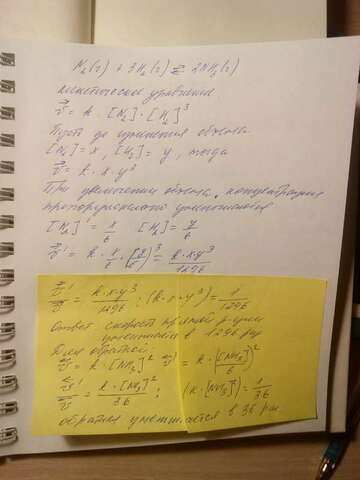 N₂(г) + 3H₂(г) ⇄ 2NH₃(г)
кинетическое уравнение
v⃗ = k · [N₂] · [H₂]³
Пусть до изменения объема
[N₂] = x, [H₂] = y, тогда
v⃗ = k · x · y³
При увеличении объема, концентрация
пропорционально уменьшается
[N₂]' = x/6 [H₂] = y/6
v⃗' = k · x/6 · (y/6)³ = k·x·y³/1296
v⃗'/v⃗ = k·x·y³/1296 : (k·x·y³) = 1/1296
Ответ скорость прямой р-ции
уменьшится в 1296 раз
Для обратной
v⃖ = k · [NH₃]² v⃖' = k · ([NH₃]/6)²
v⃖'/v⃖ = k·[NH₃]²/36 : (k·[NH₃]²) = 1/36
обратная уменьшается в 36 раз